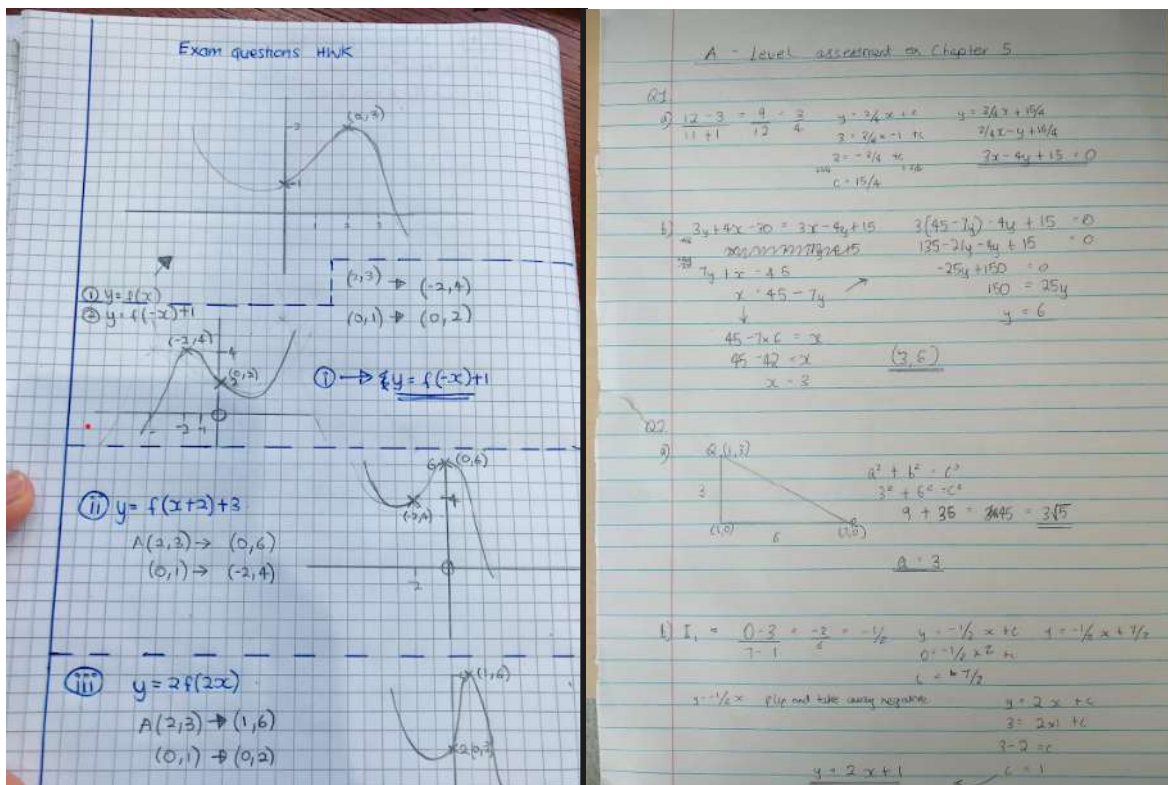 Exam questions HWK
(2,3)
3
1
① y=f(x)
② y=f(-x)+1
(2,3) → (-2,4)
(0,1) → (0,2)
(-2,4)
4
(0,2)
-2 -1
① → y=f(-x)+1
ii y=f(x+2)+3
A(2,3)→ (0,6)
(0,1)→ (-2,4)
6 (0,6)
4
(-2,4)
-2
iii y=2f(2x)
A(2,3)→(1,6)
(0,1)→(0,2)
(1,6)
2
A - Level assessment on Chapter 5
Q1
a) 12-3 = 9 = 3
11+1 12 4
y=3/4x+c
3=3/4x-1+c
3=-3/4+c
c=15/4
y=3/4x+15/4
3/4x-y+15/4
3x-4y+15=0
b) 3y+4x-30=3x-4y+15
7y+x=45
x=45-7y
45-7x6=x
45-42=x
x=3
3(45-7y)-4y+15=0
135-21y-4y+15=0
-25y+150=0
150=25y
y=6
(3,6)
Q2
a) Q(1,3)
3
(1,0)
6
(7,0)
a²+b²=c²
3²+6²=c²
9+36=45=3√5
a=3
b) l₁ = 0-3 = -3 = -1/2
7-1 6
y=-1/2x+c
c=7/2
y=-1/2x+7/2
y=-1/2x flip and take away negative
y=2x+c
3=2x1+c
3-2=c
c=1
y=2x+1